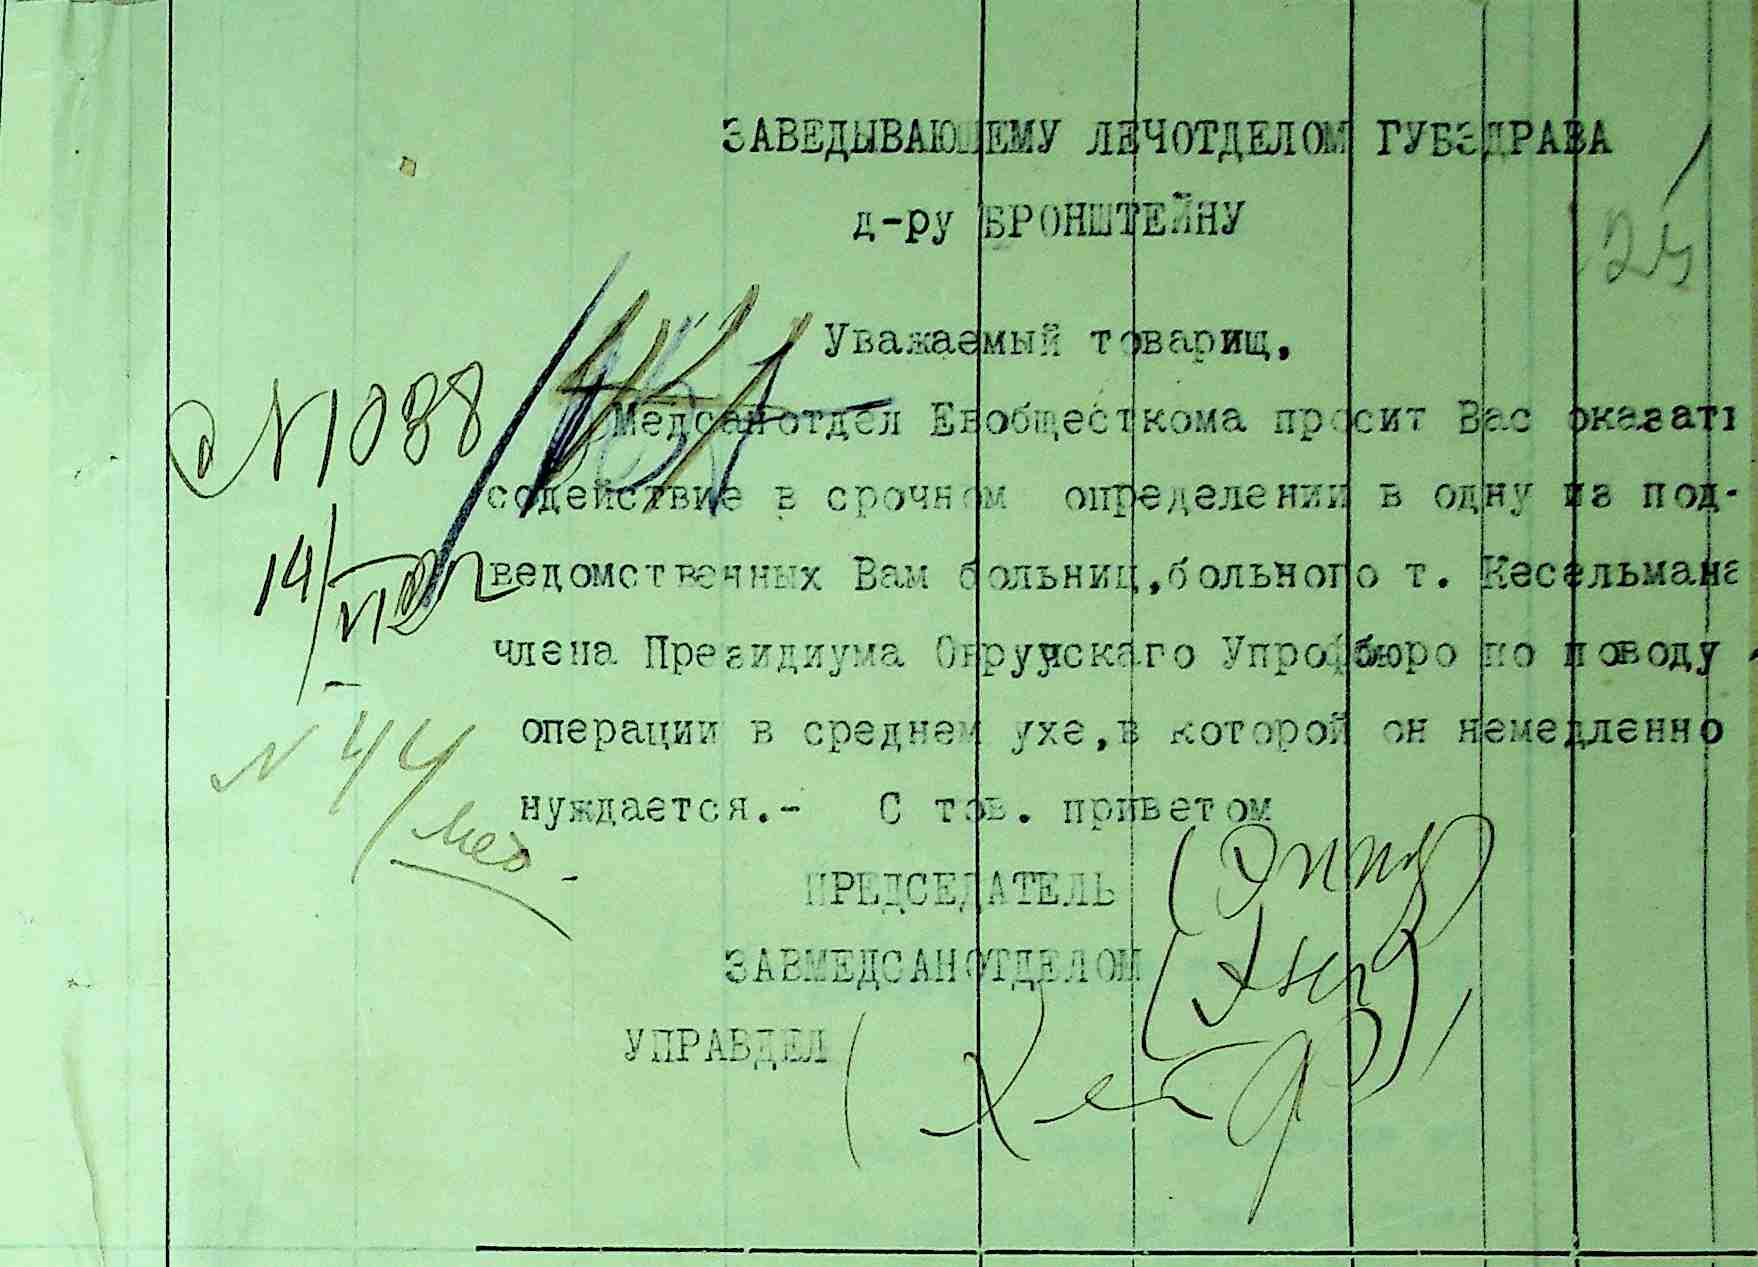 ЗАВЕДЫВАЮЩЕМУ ЛЕЧОТДЕЛОМ ГУБЗДРАВА
д-ру БРОНШТЕЙНУ
125
Уважаемый товарищ,
№ 1038
Медсанотдел Евобщесткома просит Вас оказать
содействие в срочном определении в одну из под-
14/VI 22
ведомственных Вам больниц, больного т. Кесельмана
члена Президиума Овручскаго Упрофбюро по поводу
№ 44
операции в среднем ухе, в которой он немедленно
нуждается.- С тов. приветом
ПРЕДСЕДАТЕЛЬ
ЗАВМЕДСАНОТДЕЛОМ
УПРАВДЕЛ